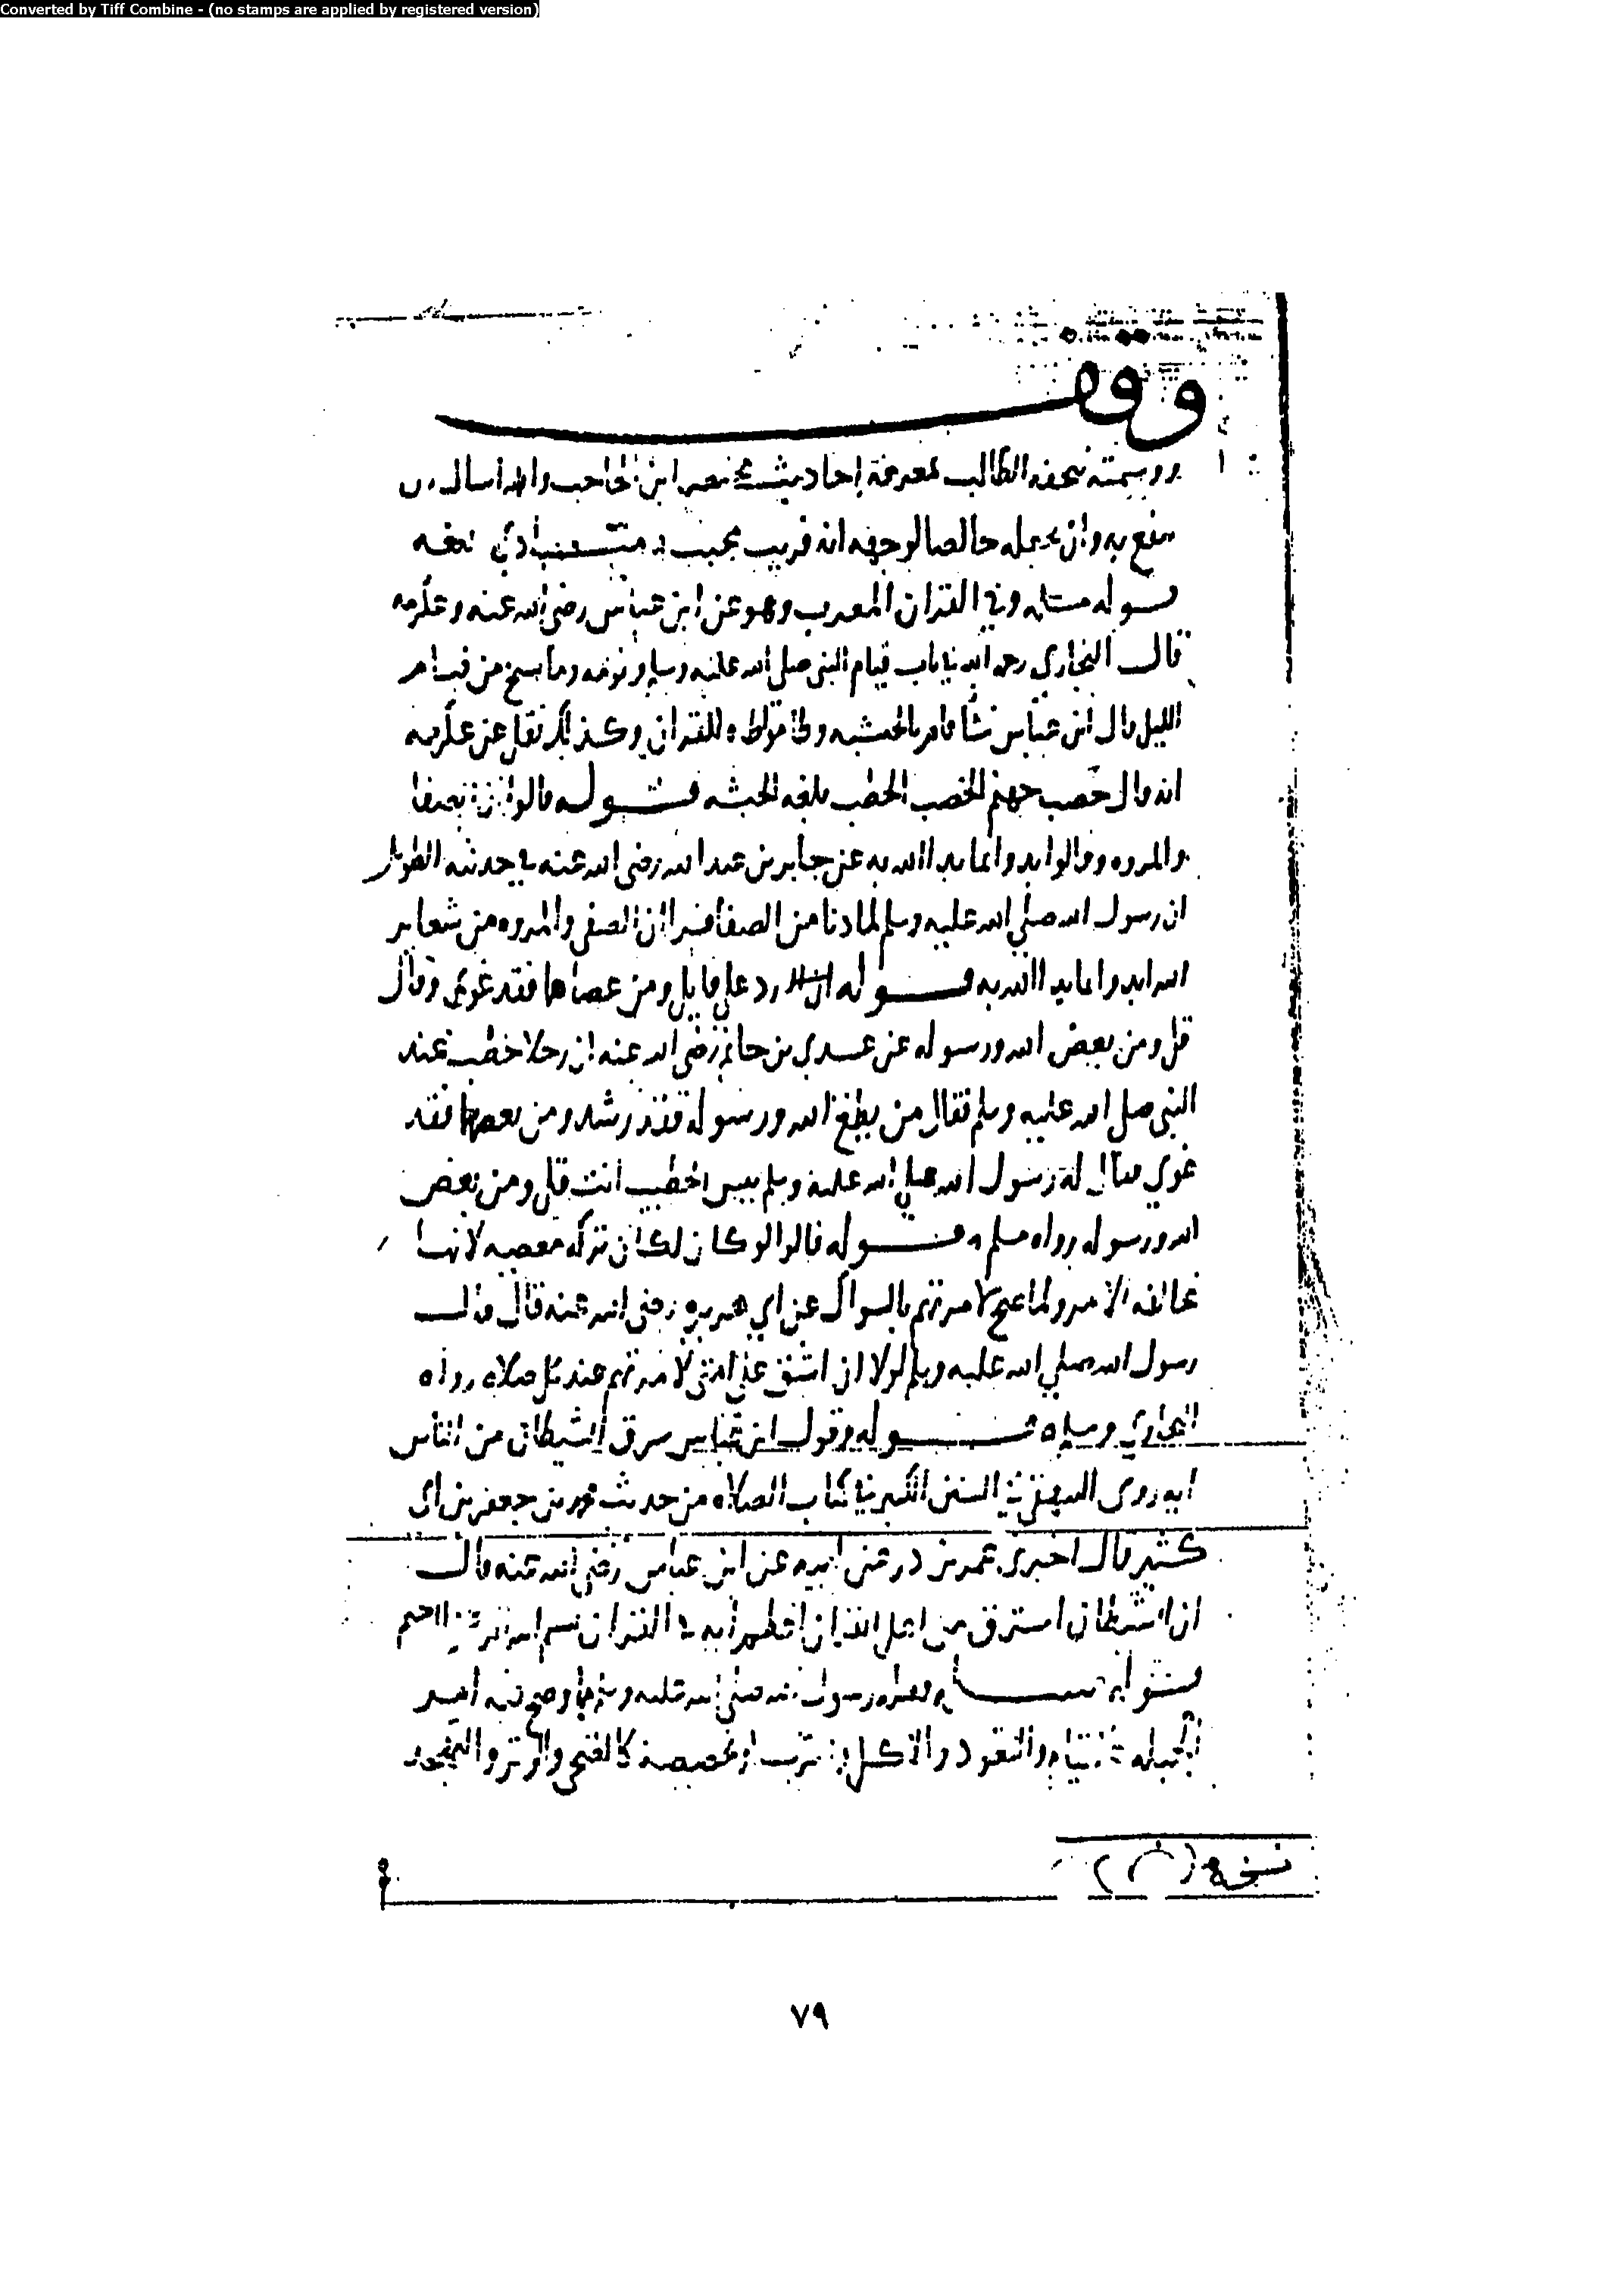 Converted by Tiff Combine - (no stamps are applied by registered version)
وقف
وسميته تحفة الطالب بمعرفة احاديث مختصر ابن الحاجب والله اسال ان
ينفع به وان يجعله خالصا لوجهه انه قريب مجيب
قوله مسئله وفي القران المعرب وهو عن ابن عباس رضي الله عنه وعكرمه
قال البخاري رحمه الله في باب قيام النبي صلى الله عليه وسلم ونومه وما نسخ من قيام
الليل قال ابن عباس نشا قام بالحبشيه وطا مواطاه للقران وكذلك نقل عن عكرمه
انه قال حصب جهنم الحصب الحطب بلغه الحبشه قوله قالوا ان الصفا
والمروه وقالوا ابدوا بما بدا الله به عن جابر بن عبد الله رضي الله عنه في حديثه الطويل
ان رسول الله صلى الله عليه وسلم لما دنا من الصفا قرا ان الصفى والمروه من شعاير
الله ابدوا بما بدا الله به قوله رد على قايل ومن عصاهما فقد غوى وقال
قل ومن يعص الله ورسوله عن عدي بن حاتم رضي الله عنه ان رجلا خطب عند
النبي صلى الله عليه وسلم فقال من يطع الله ورسوله فقد رشد ومن يعصهما فقد
غوي فقال له رسول الله صلى الله عليه وسلم بيس الخطيب انت قل ومن يعص
الله ورسوله رواه مسلم قوله قالوا لو كان لكان تركه معصيه لانها
مخالفه الامر ولما صح لامرتهم بالسواك عن ابي هريره رضي الله عنه قال قال
رسول الله صلى الله عليه وسلم لولا ان اشق على امتي لامرتهم عند كل صلاه رواه
البخاري ومسلم قوله وقول ابن عباس سرق الشيطان من الناس
ايه روى البيهقي في السنن الكبير في كتاب الصلاه من حديث محمد بن جعفر بن ابي
كثير قال اخبرني عمر بن ذر عن ابيه عن ابن عباس رضي الله عنه قال
ان الشيطان استرق من اهل القران اعظم ايه في القران بسم الله الرحمن الرحيم
رسول الله صلى الله عليه وسلم ما وضح فيه امر
الجبله كالقيام والقعود والاكل والشرب او تخصيصه كالضحى والوتر والتهجد
نسخه (
٧٩